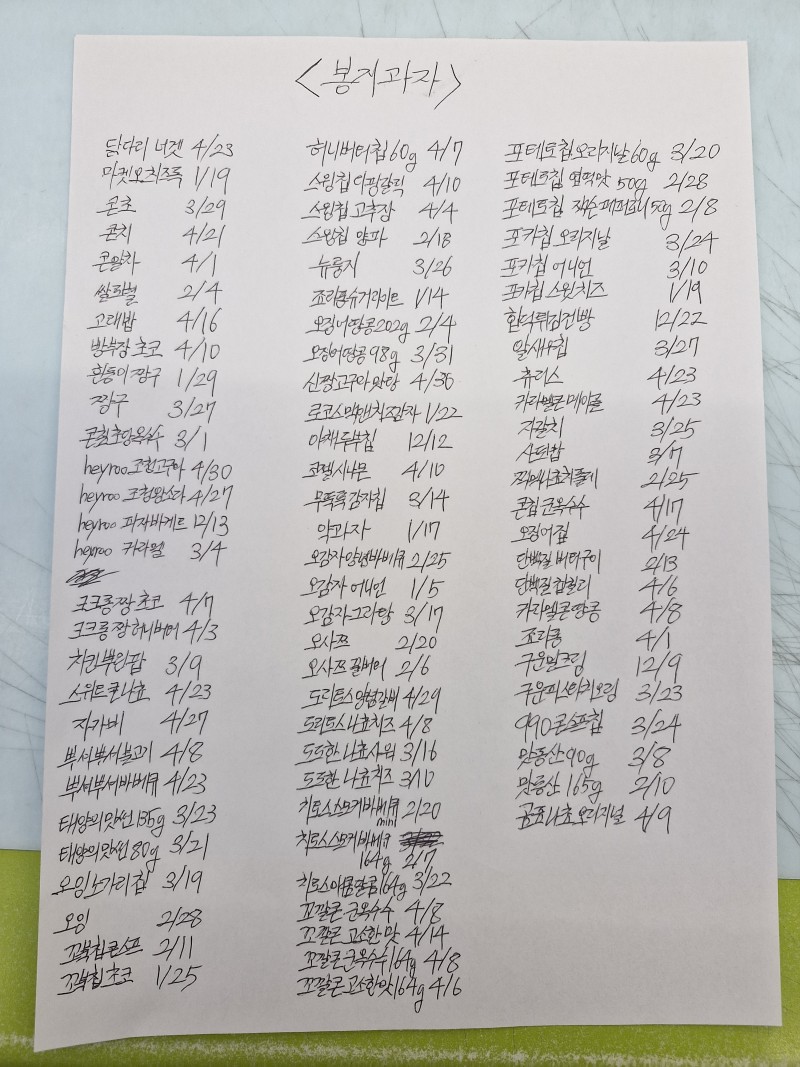 <봉지과자>
닭다리 너겟 4/23
마켓오 치즈톡 1/19
콘초 3/29
콘치 4/21
콘알차 4/1
쌀로별 2/4
고래밥 4/16
방부장 초코 4/10
흰둥이 짱구 1/29
짱구 3/27
콘칲 초당옥수수 3/1
heyroo 조청고구마 4/30
heyroo 조청왕소라 4/27
heyroo 피자바게트 12/13
heyroo 카라멜 3/4
크크롱 짱 초코 4/7
크크롱 짱 허니버터 4/3
치킨뿌린팝 3/9
스위트콘나쵸 4/23
자가비 4/27
뿌셔뿌셔불고기 4/8
뿌셔뿌셔바베큐 4/23
태양의맛썬 135g 3/23
태양의맛썬 80g 3/21
오잉노가리칩 3/19
오잉 2/28
꼬북칩콘스프 2/11
꼬북칩초코 1/25
허니버터칩 60g 4/7
스윙칩 더팡갈릭 4/10
스윙칩 고추장 4/4
스윙칩 양파 2/18
뉴룽지 3/26
죠리퐁슈거라이트 1/14
오징어땅콩202g 2/4
오징어땅콩 98g 3/31
신짱고구마와탕 4/30
로코스믹앤치즈감자 1/22
야채두부칩 12/12
꼬젤시나몬 4/10
무뚝뚝감자칩 3/14
약과자 1/17
오감자양념바베큐 2/25
오감자 어니언 1/5
오감자그라탕 3/17
오사쯔 2/20
오사쯔 꿀버터 2/6
도리토스양념갈비 4/29
도리토스나쵸치즈 4/8
도도한 나쵸사워 3/16
도도한 나쵸치즈 3/10
치토스스모키바베큐 2/20
mini
치토스스모키바베큐
164g 2/7
치토스매콤달콤164g 3/22
꼬깔콘 군옥수수 4/8
꼬깔콘 고소한 맛 4/14
꼬깔콘 군옥수수164g 4/8
꼬깔콘 고소한맛164g 4/6
포테토칩 오리지날 60g 3/20
포테토칩 엽떡맛 50g 2/28
포테토칩 잭슨페퍼로니50g 2/8
포카칩 오리지날 3/24
포카칩 어니언 3/10
포카칩 스윗치즈 1/19
힘떡튀김건빵 12/22
알새우칩 3/27
츄러스 4/23
카라멜콘 메이플 4/23
자갈치 3/25
사또밥 3/7
찍먹나쵸치폴레 2/25
콘칩 군옥수수 4/17
오징어집 4/24
단백질 버터구이 2/13
단백질칩칠리 4/6
카라멜콘땅콩 4/8
죠리퐁 4/1
구운밀크림 12/9
구운피스타치오림 3/23
990콘스프칩 3/24
맛동산90g 3/8
맛동산 165g 2/10
곰표나쵸오리지널 4/9